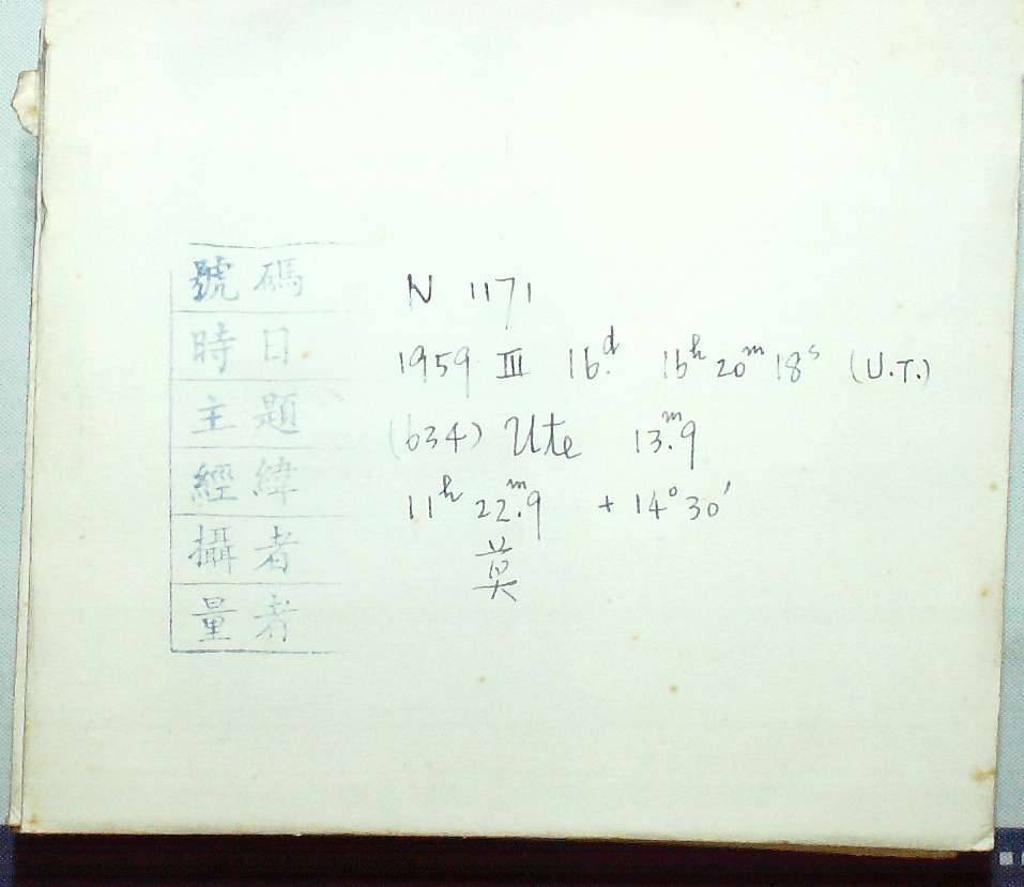 號碼 N 1171
時日 1959 III 16.ᵈ 16ʰ 20ᵐ 18ˢ (U.T.)
主題 (634) Ute 13ᵐ.9
經緯 11ʰ 22ᵐ.9 + 14° 30′
攝者 莫
量者